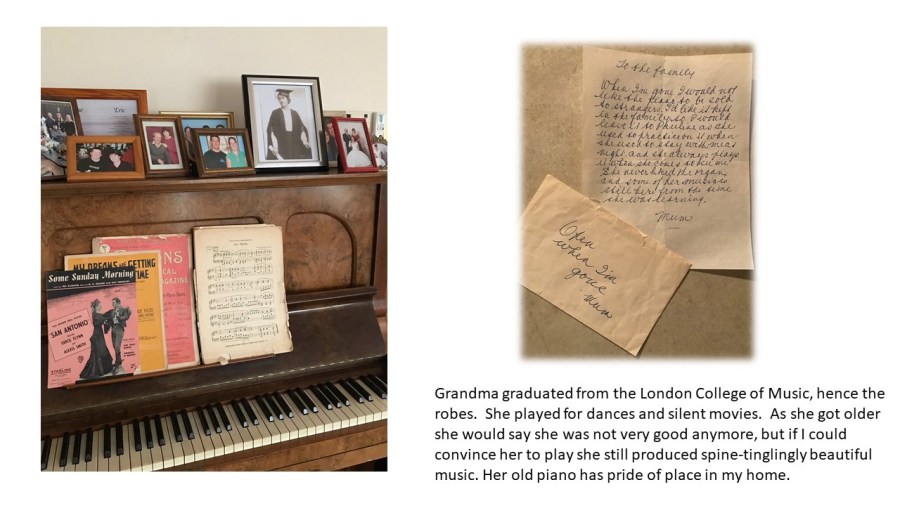 Some Sunday Morning
SAN ANTONIO
ERROL FLYNN
ALEXIS SMITH
MY DREAMS ARE GETTING
TIME
NS
CAL
AGAZINE
To the family
When I'm gone I would not
like the piano to be sold
to strangers, I'd like it kept
in the family, so I would
leave it to as she
used to practice on it when
she used to stay with me at
night and she always plays
it when she comes to see me
She never liked the organ,
and some of her music is
still here from the time
she was learning.
Mum
Open
when I'm
gone
Mum
Grandma graduated from the London College of Music, hence the
robes. She played for dances and silent movies. As she got older
she would say she was not very good anymore, but if I could
convince her to play she still produced spine-tinglingly beautiful
music. Her old piano has pride of place in my home.